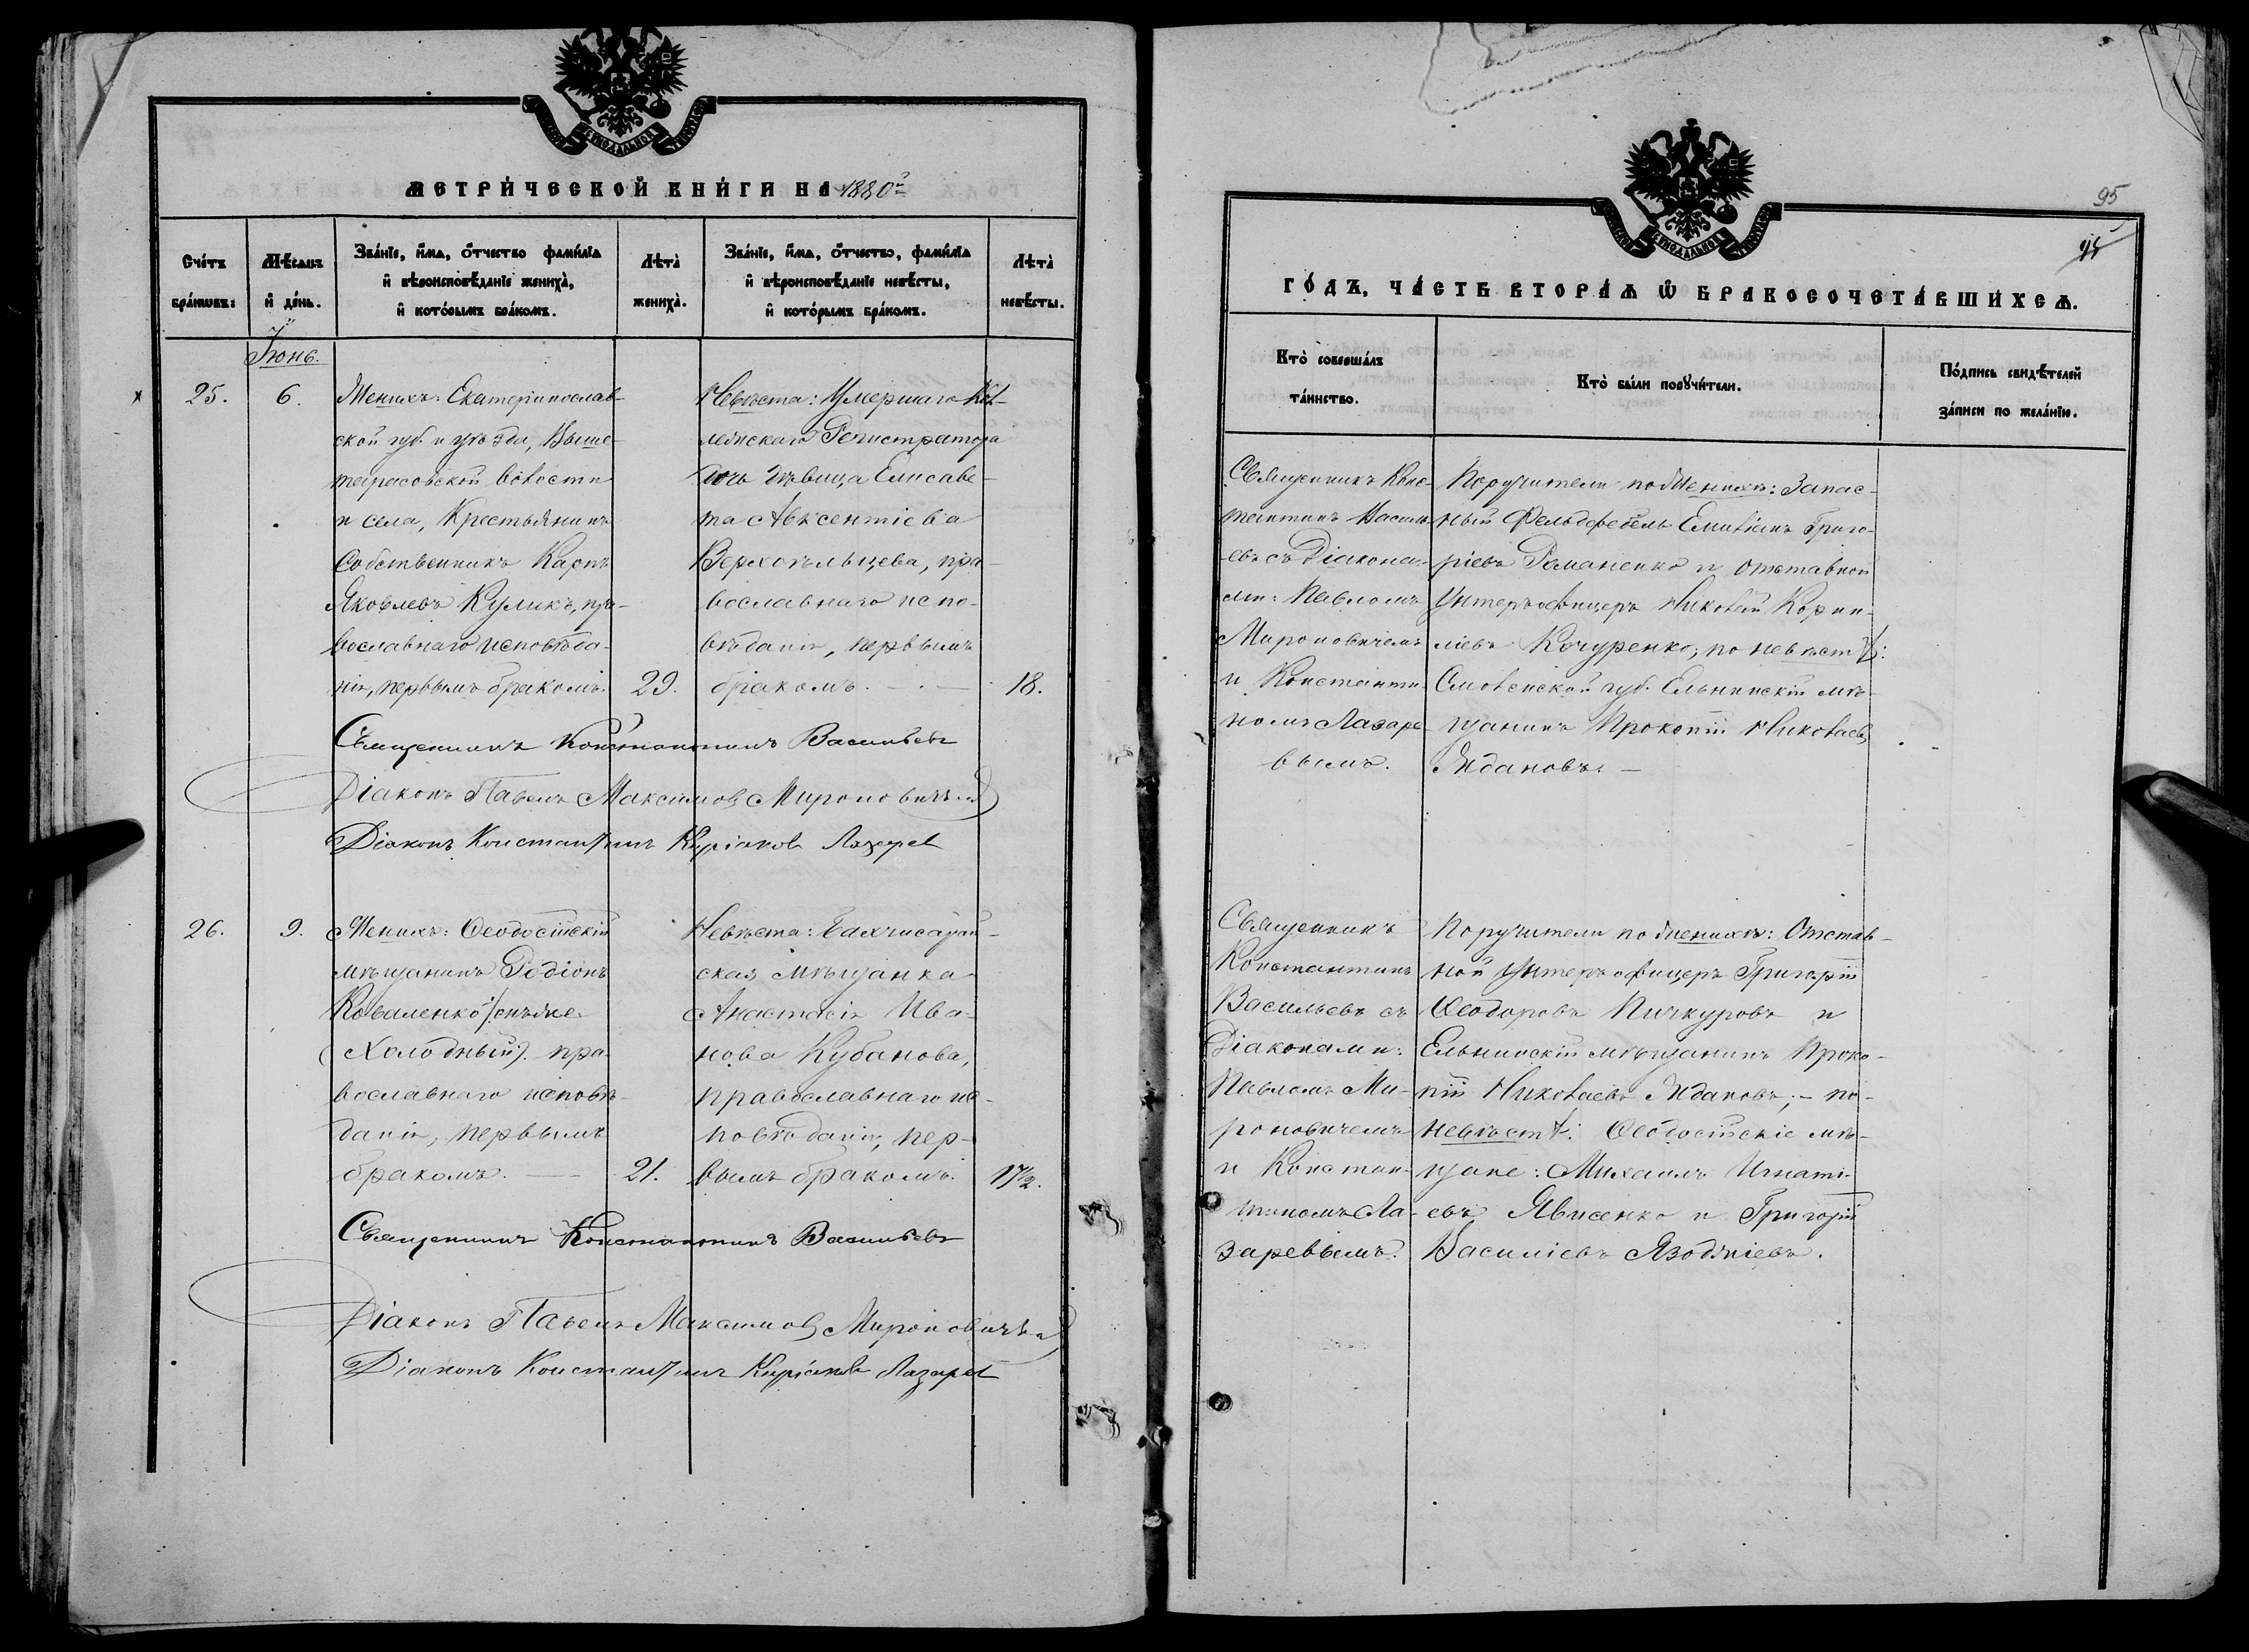 МЕТРИ́ЧЕСКОЙ КНИ́ГИ НА 1880й
Сче́тъ
бра́ковъ:
Мѣсяцъ
и҆ де́нь.
Зва́нїе, и҆́мѧ, ѻ҆́тчество фами́лїѧ
и҆ вѣроисповѣ́данїе жениха̀,
и҆ кото́рымъ бра́комъ.
Лѣта̀
жениха̀.
Зва́нїе, и҆́мѧ, ѻ҆́тчество, фами́лїѧ
и҆ вѣроисповѣ́данїе невѣ́сты,
и҆ кото́рымъ бра́комъ.
Лѣта̀
невѣ́сты.
Іюнь.
25.
6.
Женихъ: Екатеринослав-
ской губ. и уѣзда, Выше-
тарасовской волости
и села, Крестьянинъ
Собственникъ Карпъ
Яковлевъ Куликъ, пра-
вославнаго исповѣда-
нія, первымъ бракомъ.
29.
Невѣста: Умершаго Кол-
лежскаго Регистратора
дочь дѣвица Елисаве-
та Авксентіева
Верхогльцева, пра-
вославнаго испо-
вѣданія, первымъ
бракомъ. —
18.
Священникъ Константинъ Васильевъ
Діаконъ Павелъ Максимовъ Мироновичъ
Діаконъ Константинъ Киріаковъ Лазаревъ
26.
9.
Женихъ: Ѳеодосійскій
мѣщанинъ Родіонъ
Коваленко /онъ же
Холодный/. пра-
вославнаго исповѣ-
данія, первымъ
бракомъ. —
21.
Невѣста: Бахчисарай-
ская мѣщанка
Анастасія Ива-
нова Кубанова,
православнаго ис-
повѣданія, пер-
вымъ бракомъ.
17½.
Священникъ Константинъ Васильевъ
Діаконъ Павелъ Максимовъ Мироновичъ
Діаконъ Константинъ Киріаковъ Лазаревъ
95
95
ГО́ДЪ, ЧА́СТЬ ВТОРА́Ѧ Ѡ҆ БРАКОСОЧЕТА́ВШИХСѦ.
Кто̀ соверша́лъ
та́инство.
Кто̀ бы́ли порꙋчи́тели.
По́дпись свидѣ́телей
за́писи по жела́нїю.
Священникъ Конс-
тантинъ Василь-
евъ съ Діакона-
ми: Павломъ
Мироновичемъ
и Константи-
номъ Лазаре-
вымъ.
Поручители по Женихѣ: Запас-
ный Фельдфебель Емиліанъ Григо-
ріевъ Романенко и Отставной
Унтеръ офицеръ Николай Корни-
ліевъ Кочуренко; по невѣстѣ:
Смоленской губ. Ельнинскій мѣ-
щанинъ Прокопій Николаевъ
Ждановъ. —
Священникъ
Константинъ
Васильевъ съ
Діаконами:
Павломъ Ми-
роновичемъ
и Констан-
тиномъ Ла-
заревымъ.
Поручители по женихѣ: Отстав-
ной Унтеръ офицеръ Григорій
Ѳеодоровъ Пичкуровъ и
Ельнинскій мѣщанинъ Проко-
пій Николаевъ Ждановъ; — по
невѣстѣ: Ѳеодосійскіе мѣ-
щане: Михаилъ Игнати-
евъ Явисенко и Григорій
Василіевъ